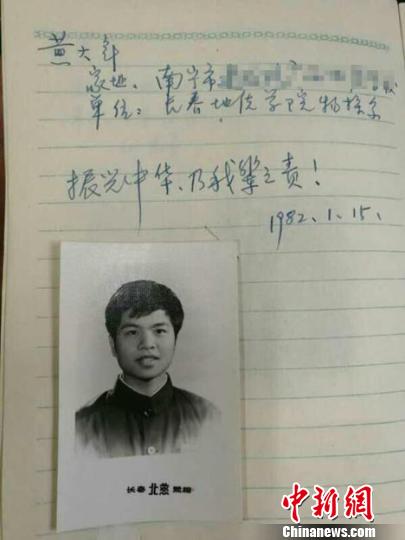 黄大年
家址：南宁市
单位：长春地质学院物探系
振兴中华、乃我辈之责！
1982.1.15.
长春 北燕 照相
中新网
Chinanews.com